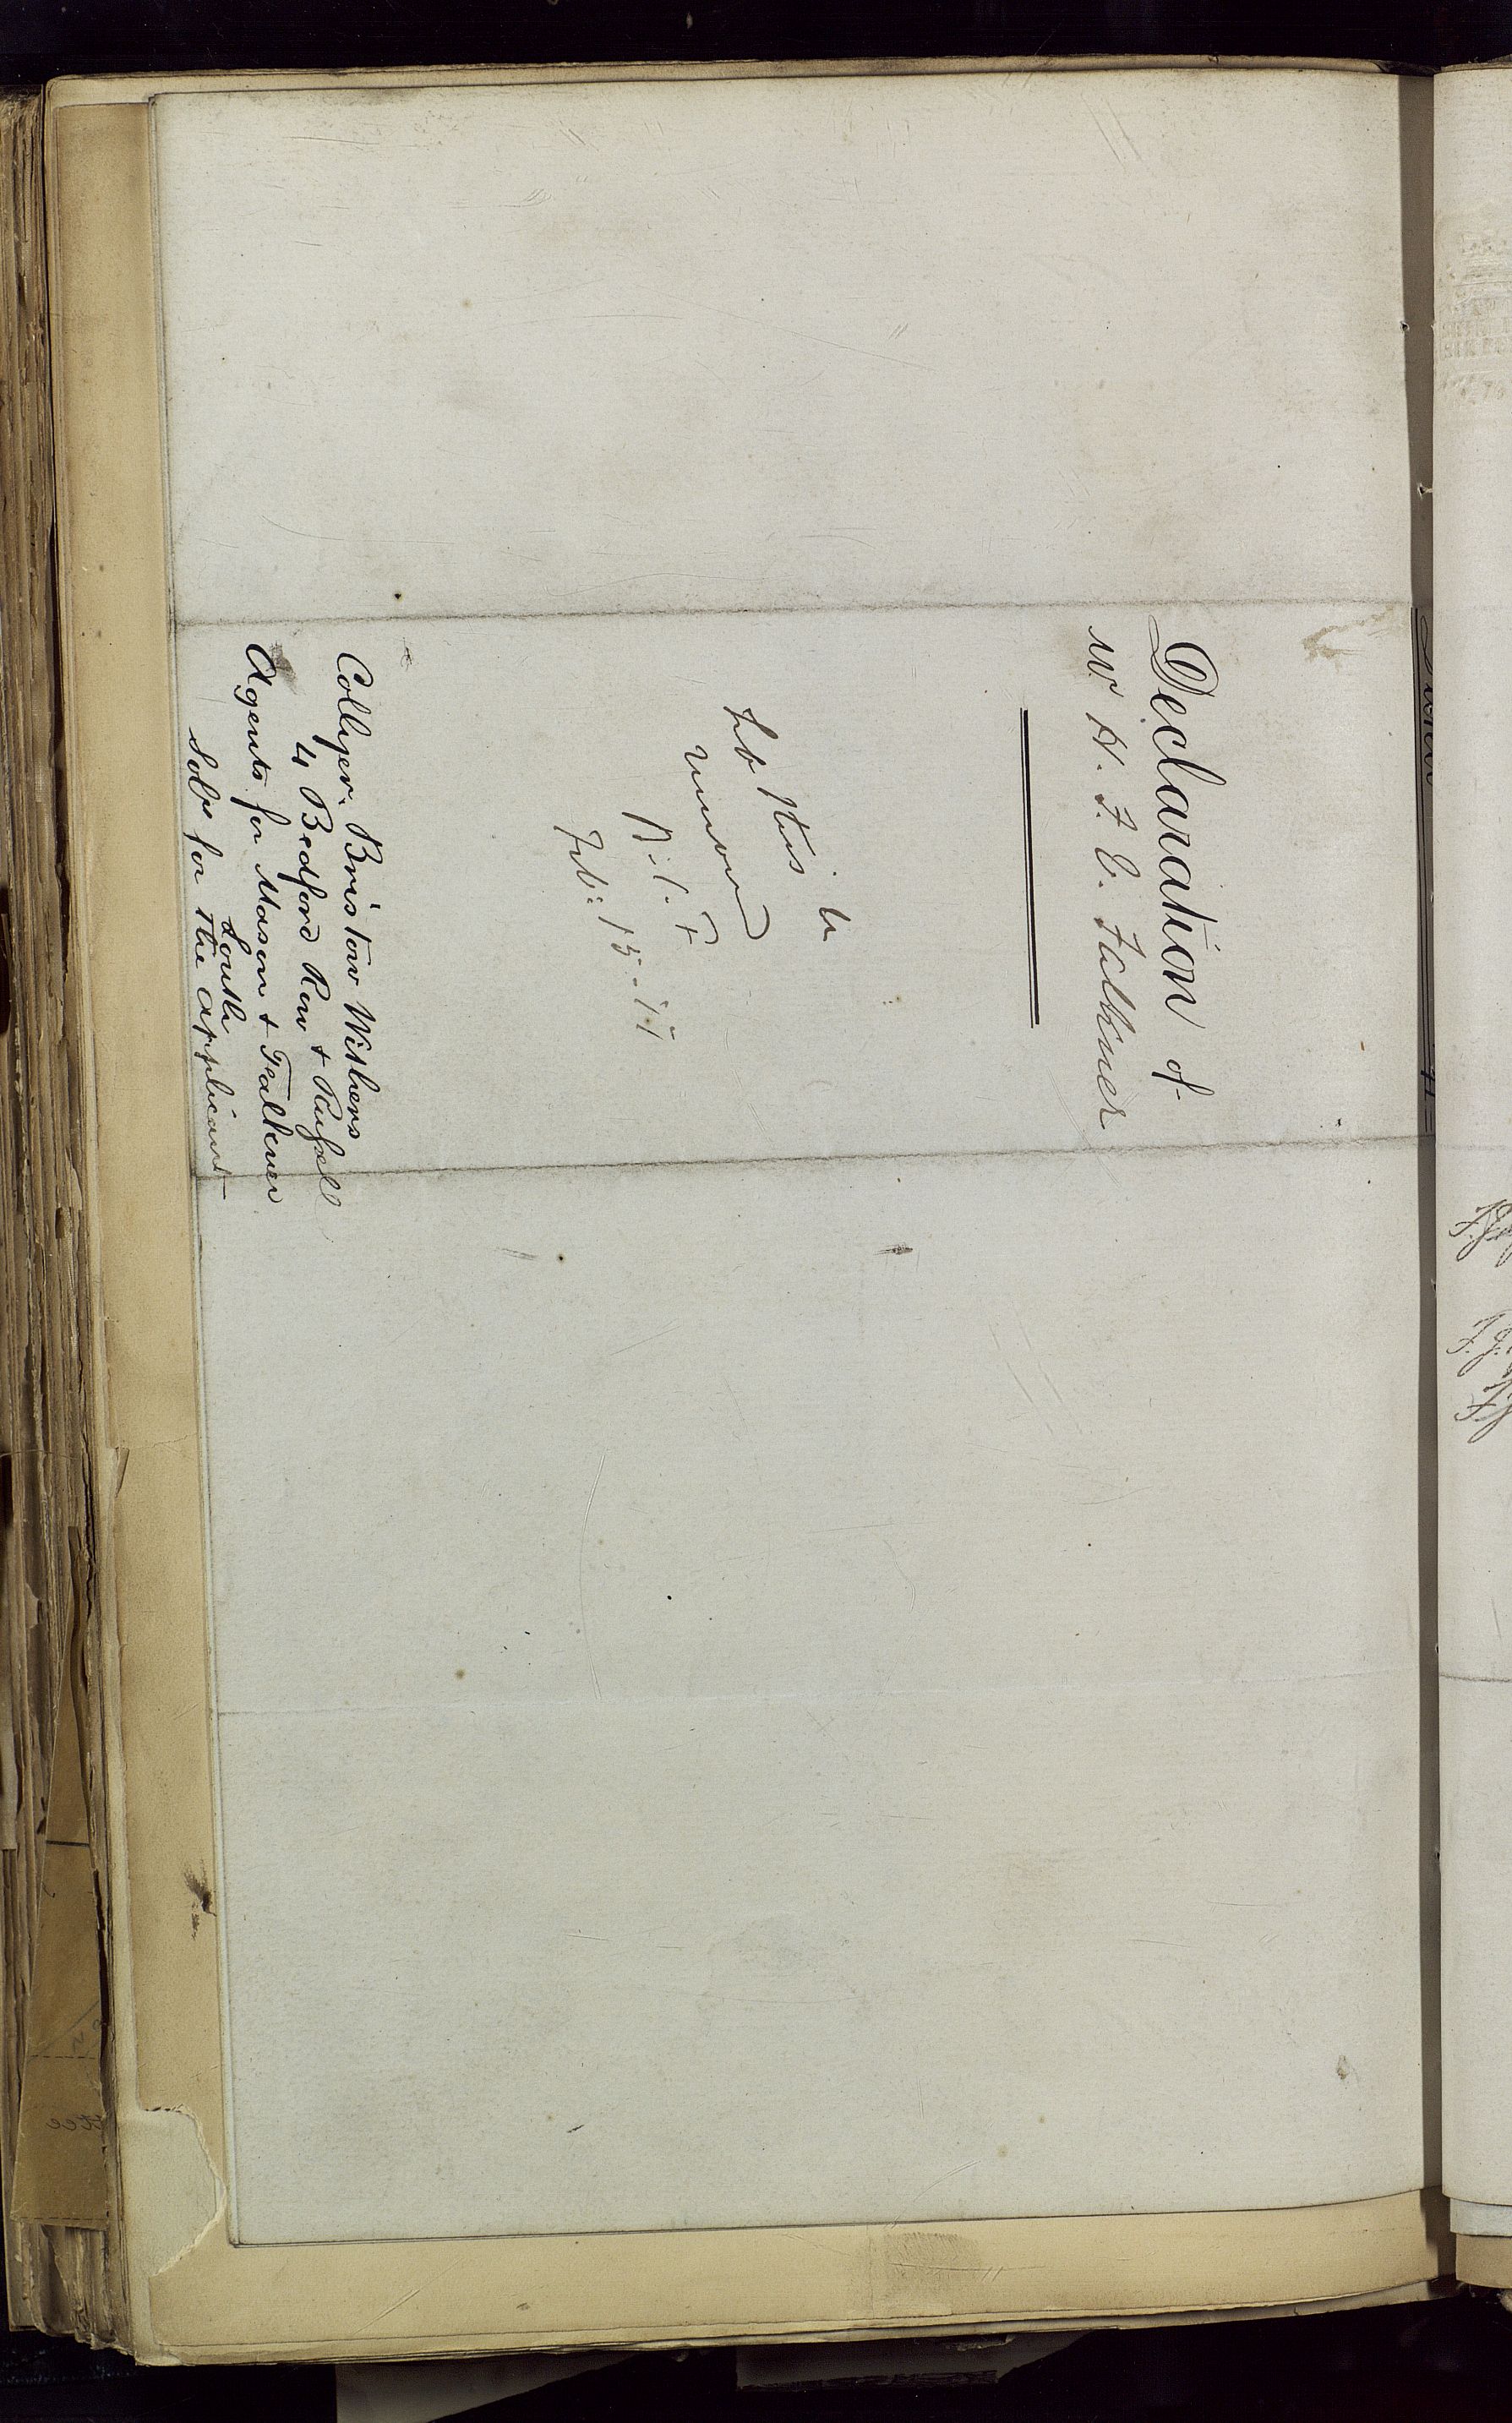 Declaration of
W. H. F. C. Falkner
Let this be
removed
Feb: 15.
Collyer. Bristow Withers
4 Bedford Row & Russell
Agents for Mason & Falkner
Louth
Solrs for the applicant